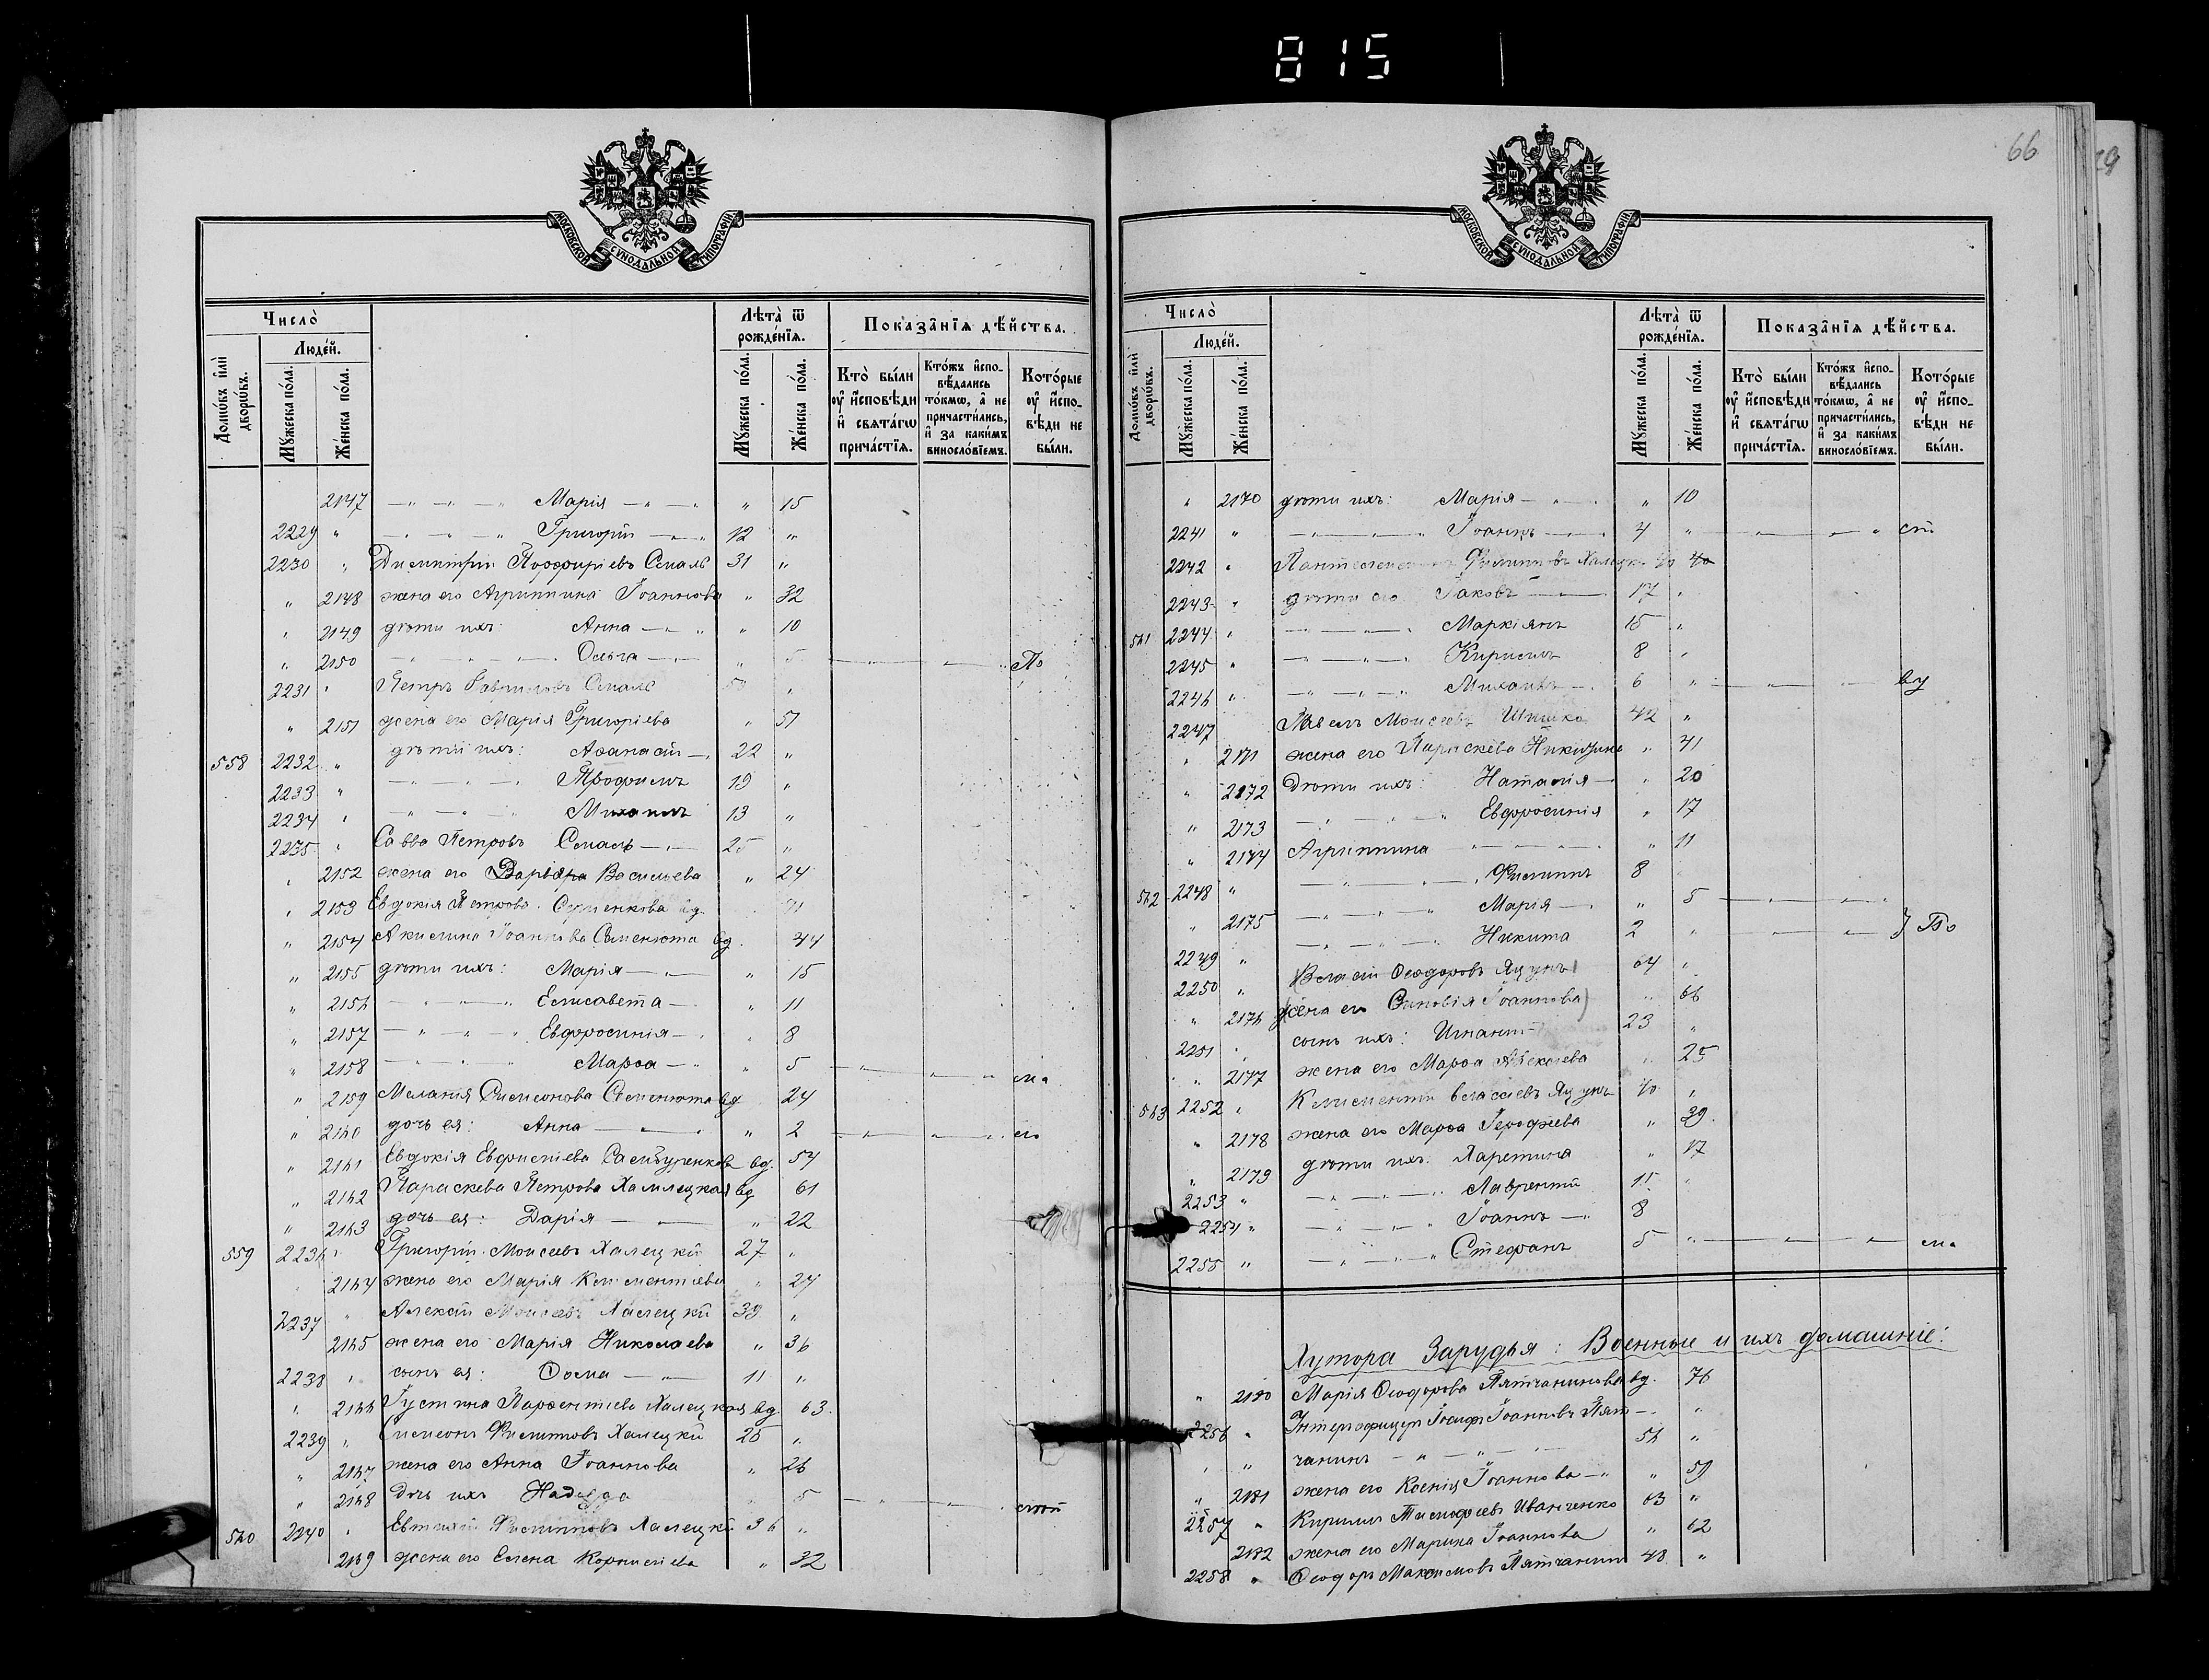 815
МОСКОВСКОЙ СѴНОДАЛЬНОЙ ТИПОГРАФІИ
Число̀
Людéй.
Домѡ́въ и҆лѝ дворѡ́въ.
Мꙋ́жеска по́ла.
Же́нска по́ла.
Лѣта̀ ѿ рожде́нїѧ.
Мꙋ́жеска по́ла.
Же́нска по́ла.
Показа̑нїѧ дѣ́йства.
Кто̀ бы́ли ᲂу҆ и҆́сповѣди и҆ свѧта́гѡ прича́стїѧ.
Кто́жъ и҆спо-вѣ́дались то́кмѡ, а҆ не причасти́лись, и҆ за каки́мъ винословїемъ.
Кото́рые ᲂу҆ и҆спо-вѣди не бы́ли.
2147 — „ — „ — „ Марія — „ — „ „ 15
2229 „ — „ — „ — „ Григорій — „ — „ 12 „
2230 „ Димитрій Порфиріевъ Смаль 31 „
„ 2148 жена его Агриппина Іоаннова „ 32
„ 2149 дѣти ихъ: Анна — „ — „ „ 10
„ 2150 — „ — „ — „ Ольга — „ — „ 5 — „ — „ — „ По
2231 „ Петръ Гавриловъ Смаль 50 „
„ 2151 жена его Марія Григоріева „ 51
558 2232 „ дѣти ихъ: Аѳанасій — „ 22 „
2233 „ — „ — „ — „ Трофимъ 19 „
2234 „ — „ — „ — „ Михаилъ 13 „
2235 „ Савва Петровъ Смаль — „ — 25 „
„ 2152 жена его Васильева „ 24
„ 2153 Евдокія Петрова вд.
„ 2154 Акилина Іоаннова Семенюта вд. 44
„ 2155 дѣти ихъ: Марія — „ — „ 15
„ 2156 — „ — „ — „ Елисавета — „ „ 11
„ 2157 — „ — „ — „ Евфросинія — „ „ 8
„ 2158 — „ — „ — „ Марѳа — „ „ 5 — „ — „ — „ ма
„ 2159 Меланія Симеонова Семенюта вд 24
„ 2160 дочь ея: Анна — „ — „ „ 2 — „ — „ — „ ло
„ 2161 Евдокія вд. 54
„ 2162 Параскева Петрова Халецкая вд 61
„ 2163 дочь ея: Дарія — „ — „ 22
559 2236 „ Григорій Моисеевъ Халецкій 27 „
„ 2164 жена его Марія Климентіева „ 27
2237 „ Алексій Моисеевъ Халецкій 39 „
2165 жена его Марія Николаева „ 36
2238 „ сынъ ея: Ѳома — „ — 11 „
„ 2166 Іустина Парѳентіева Халецкая вд. 63.
2239 „ Симеонъ Филипповъ Халецкій 25 „
„ 2167 жена его Анна Іоаннова „ 26
„ 2168 дочь ихъ Надежда „ 5 — „ — „ —
560 2240 „ Евтихій Филипповъ Халецкій 36 „
2169 жена его Елена Корниліева „ 32
66
МОСКОВСКОЙ СѴНОДАЛЬНОЙ ТИПОГРАФІИ
Число̀
Людéй.
Домѡ́въ и҆лѝ дворѡ́въ.
Мꙋ́жеска по́ла.
Же́нска по́ла.
Лѣта̀ ѿ рожде́нїѧ.
Мꙋ́жеска по́ла.
Же́нска по́ла.
Показа̑нїѧ дѣ́йства.
Кто̀ бы́ли ᲂу҆ и҆́сповѣди и҆ свѧта́гѡ прича́стїѧ.
Кто́жъ и҆спо-вѣ́дались то́кмѡ, а҆ не причасти́лись, и҆ за каки́мъ винословїемъ.
Кото́рые ᲂу҆ и҆спо-вѣди не бы́ли.
„ 2170 дѣти ихъ: Марія — „ — „ 10
2241 „ — „ — „ — „ Іоаннъ — „ — 4 „ — „ — „ — „
2242 „ Филипповъ 40
2243 „ дѣти его Іаковъ — „ — 17 „
561 2244 „ — „ — „ — „ Маркіянъ 15 „
2245 „ — „ — „ — „ Кириллъ 8 „
2246 „ — „ — „ — „ Михаилъ — „ 6 „ — „ — „ ву
2247 Павелъ Моисеевъ Шишка 42 „
„ 2171 жена его Параскева „ 41
„ 2172 Дѣти ихъ: Наталія — „ 20
„ 2173 — „ — „ — „ Евфросинія „ 17
„ 2174 Агриппина — „ — „ — „ „ 11
562 2248 „ — „ — „ — „ Филиппъ 8
„ 2175 — „ — „ — „ Марія — „ „ 5 — „ — „ — „
2249 „ — „ — „ — „ Никита 2 „ — „ — „ } По
2250 „ (Власій Ѳеодоровъ Яцунъ) 64 „
„ 2176 жена его Зиновія Іоаннова) „ 66
2251 „ сынъ ихъ: Игнатій 23 „
„ 2177 жена его Марѳа Алексіева „ 25
563 2252 „ Климентій Власіевъ Яцунъ 40 „
„ 2178 жена его Марѳа Іероѳеева „ 39.
„ 2179 дѣти ихъ: Харитина „ 17
2253 „ — „ — „ — „ Лаврентій 15 „
2254 „ — „ — „ — „ Іоаннъ — „ 8
2255 „ — „ — „ — „ Стефанъ 5 „ — „ — „ — „ ма
Хутора Зарудья: Военные и ихъ домашніе:
„ 2180 Марія Ѳеодорова Пятчанинова вд. 76
2256 „ Унтерофицеръ Іосифъ Іоанновъ Пят- „
„ „ чанинъ — „ — „ — 56 „
„ 2181 жена его Ксенія Іоаннова — „ „ 59
2257 „ Кириллъ Тимофеевъ Иванченко 63 „
2182 жена его Марина Іоаннова „ 62
2258 „ Ѳеодоръ Максимовъ Пятчанинъ 48 „